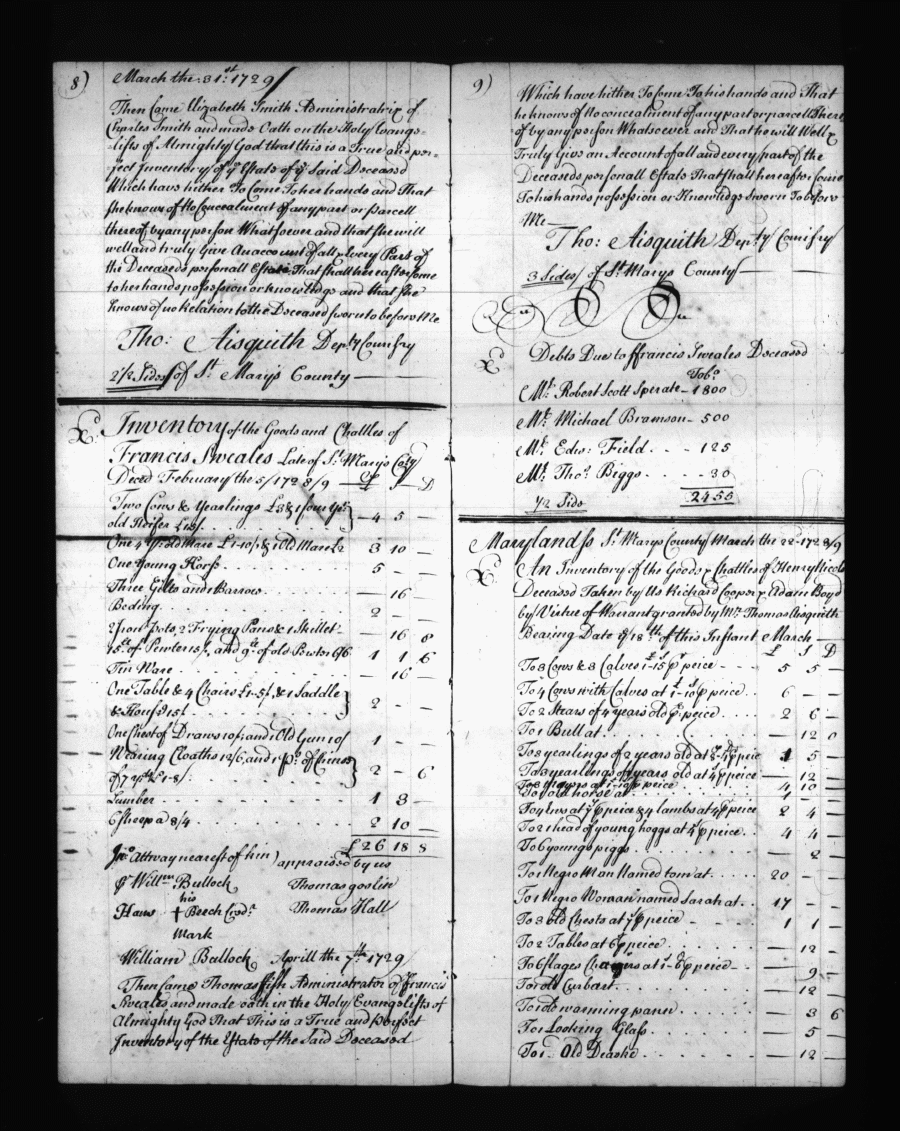 8)
March the 31st. 1729
Then Came Elizabeth Smith Administratrix of
Charles Smith and made Oath on the Holy Evange=
=lists of Almighty God that this is a True and per=
=fect Inventory of ye. Estate of ye. Said Deceased
Which have hither To Come To her hands and That
She knows of No Concealment of any part or Parcell
thereof by any person Whatsoever and that She will
well and truly Give An account of all & Every Part of
the Deceaseds personall Estate That shall hereafter Come
to her hands possession or knowledge and that She
knows of no Relation to the Deceased sworn to before Me
Tho: Aisquith Depty Comisry
2 1/2 Sides of St. Marys County
Inventory of the Goods and Chattles of
Francis Sweales Late of St. Marys Coty
Deced February the 5/1728/9 £ S D
Two Cows & Yearlings £3 & 1 four yr.
old Heifer £1:5/. } - 4 5 -
One 4 Yr. old Mare £1-10/. & 1 Old Mare £2 3 10 -
One Young Horse 5 - -
Three Gilts and 1 Barrow - 16 -
Beding 2 - -
2 Iron Pots, 2 Frying Pans & 1 Skillet - 16 8
15lt. of Pewter and 9lt. of old Pewter 6/6 1 1 6
Tin Ware - 16 -
One Table & 4 Chairs £1-5/. & 1 Saddle
& House 15/. } 2 - -
One Chest of Draws 10/. and 1 Old Gun 10/ 1 - -
Wearing Cloaths 12/6, and 1 Ps. of
of 7 £1-8/. } 2 - 6
Lumber 1 3 -
6 Sheep a 8/4 2 10 -
£26 18 8
Jno. Attway nearest of kin } appraised by us
Willm. Bullock Thomas goslin
his
Hans + Beech Cred. Thomas Hall
Mark
William Bullock Aprill the 7th. 1729
Then Came Thomas Fish Administrator of Francis
Sweales and made oath in the Holy Evangelists of
Almighty God That This is a True and Perfect
Inventory of the Estate of the Said Deceased
9)
Which have hither To Come To his hands and That
he knows of No concealment of any part or parcell There
of by any person Whatsoever and That he will Well &
Truly Give an Account of all and every part of the
Deceaseds personall Estate That shall hereafter Come
To his hands possession or Knowledge Sworn To before
Me
Tho: Aisquith Depty Comisry
3 Sides of St. Marys County
Debts Due to Francis Sweales Deceased
Tobo.
Mr. Robert Scott Sperate - 1800
Mr. Michael Bramson - 500
Mr. Edw: Field - 125
Mr. Tho. Biggs - 30
1/2 Side 2455
Maryland ss St. Marys County March the 22d 1728/9
An Inventory of the Goods & Chattles of Henry Nicols
Deceased Taken by Us Richard Cooper & Adam Boyd
by Virtue of Warrant granted by Mr. Thomas Aisquith
Bearing Date ye 18th of this Instant March
£ S D
To 3 Cows & 3 Calves 1-15 P peice 5 5 -
To 4 Cows with Calves at 1-10 P peice 6 - -
To 2 Stears of 4 years old P peice 2 6 -
To 1 Bull at - 12 0
To 3 yearlings of 2 years old at P peice 1 5 -
To 3 yearlings of years old at 4/ P peice - 12 -
To 3 at 1-10 P peice 4 10 -
To 1 old horse at
To 4 Ews at P peice & 4 lambs at 4/ P peice 2 4 -
To 21 head of young hoggs at 4/ P peice 4 4 -
To 6 young piggs - 2 -
To 1 Negro Man Named Tom at 20 - -
To 1 Negro Woman named Sarah at 17 - -
To 3 old Chests at 7/ P peice 1 1 -
To 2 Tables at 6/ P peice - 12 -
To 6 flagg Chairs at 1-6 P peice - 9 -
To old - 12 -
To old warming pann - 3 6
To 1 Looking Glass - 5 -
To 1 Old - 12 -